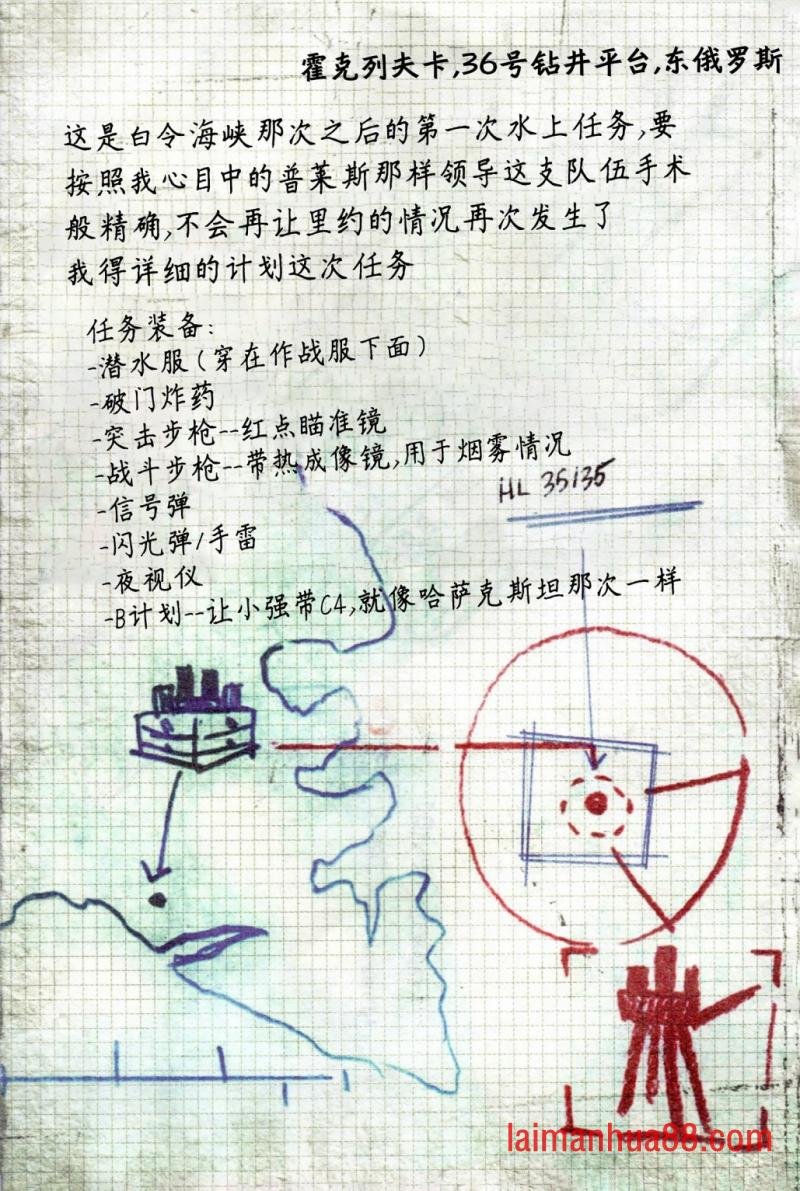 霍克列夫卡,36号钻井平台,东俄罗斯
这是白令海峡那次之后的第一次水上任务,要
按照我心目中的普莱斯那样领导这支队伍手术
般精确,不会再让里约的情况再次发生了
我得详细的计划这次任务
任务装备:
-潜水服(穿在作战服下面)
-破门炸药
-突击步枪--红点瞄准镜
-战斗步枪--带热成像镜,用于烟雾情况
-信号弹
-闪光弹/手雷
-夜视仪
-B计划--让小强带C4,就像哈萨克斯坦那次一样
HL 35135
laimanhua88.com